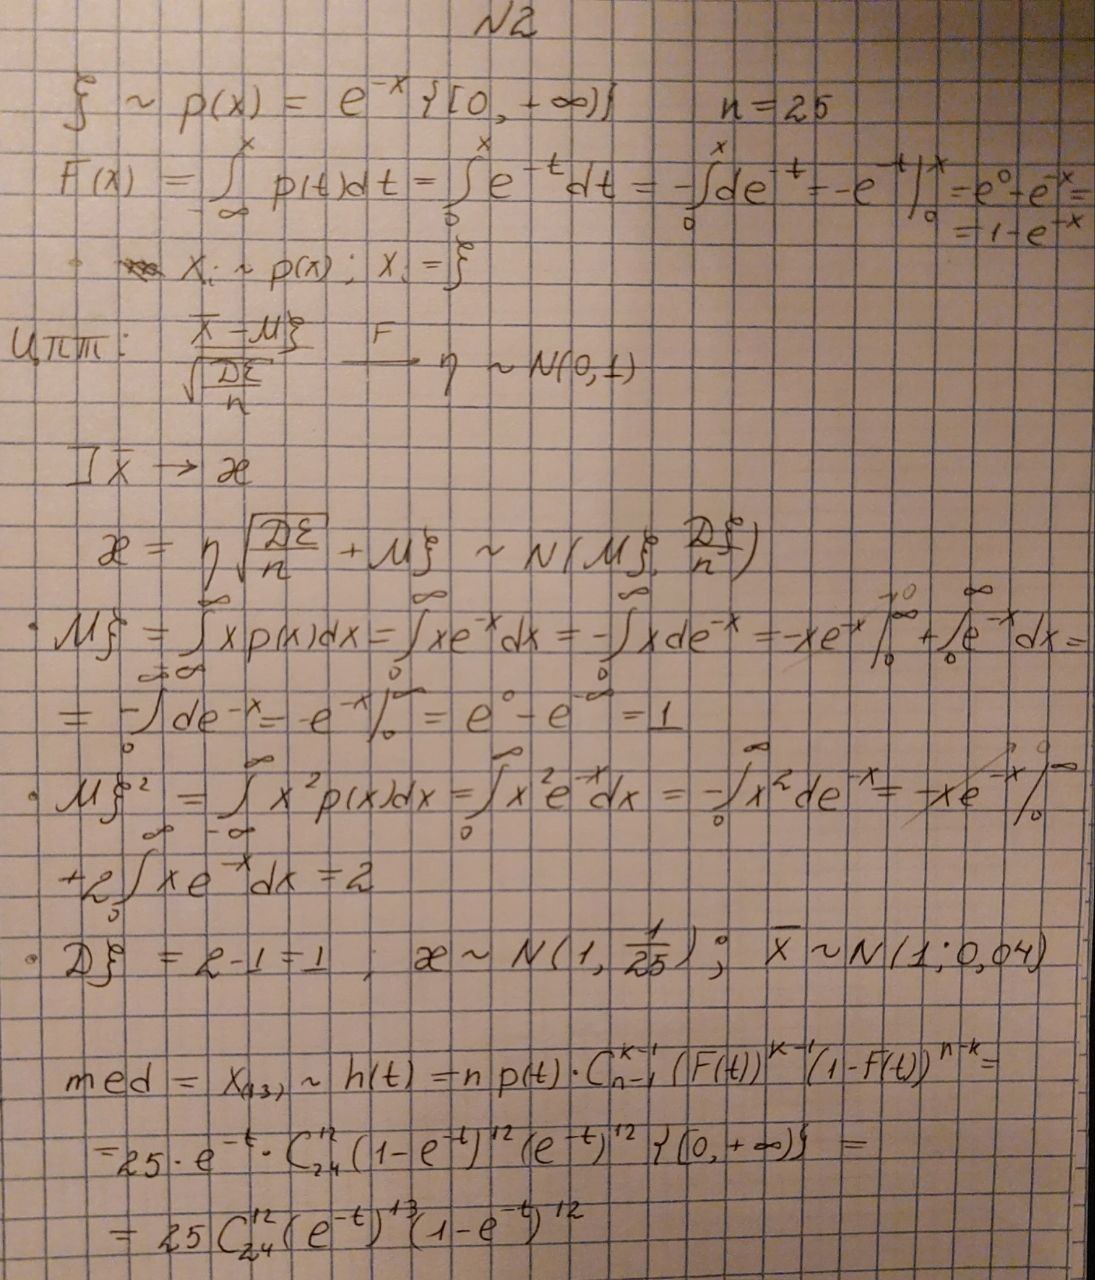 N2
ξ ~ p(x) = e^{-x} {[0, +∞)}   n = 25
F(x) = ∫_{-∞}^{x} p(t)dt = ∫_0^x e^{-t}dt = -∫_0^x de^{-t} = -e^{-t}|_0^x = e^0 - e^{-x} =
= 1 - e^{-x}
X_i ~ p(x); X_i = ξ
ЦПТ: (x̄ - Mξ)/√(Dξ/n) →^F η ~ N(0,1)
⊐ x̄ → æ
æ = η√(Dξ/n) + Mξ ~ N(Mξ, Dξ/n)
• Mξ = ∫_{-∞}^{∞} x p(x)dx = ∫_0^∞ xe^{-x}dx = -∫_0^∞ x de^{-x} = -xe^{-x}|_0^∞ →0 + ∫_0^∞ e^{-x}dx =
= -∫_0^∞ de^{-x} = -e^{-x}|_0^∞ = e^0 - e^{-∞} = 1
• Mξ² = ∫_{-∞}^{∞} x²p(x)dx = ∫_0^∞ x²e^{-x}dx = -∫_0^∞ x²de^{-x} = -xe^{-x}|_0^∞ →0
+2∫_0^∞ xe^{-x}dx = 2
• Dξ = 2-1 = 1 ; æ ~ N(1, 1/25); x̄ ~ N(1; 0,04)
med = X_{(13)} ~ h(t) = n p(t)·C_{n-1}^{k-1} (F(t))^{k-1} (1-F(t))^{n-k} =
= 25·e^{-t}·C_{24}^{12} (1-e^{-t})^{12} (e^{-t})^{12} {[0, +∞)} =
= 25 C_{24}^{12} (e^{-t})^{13} (1-e^{-t})^{12}